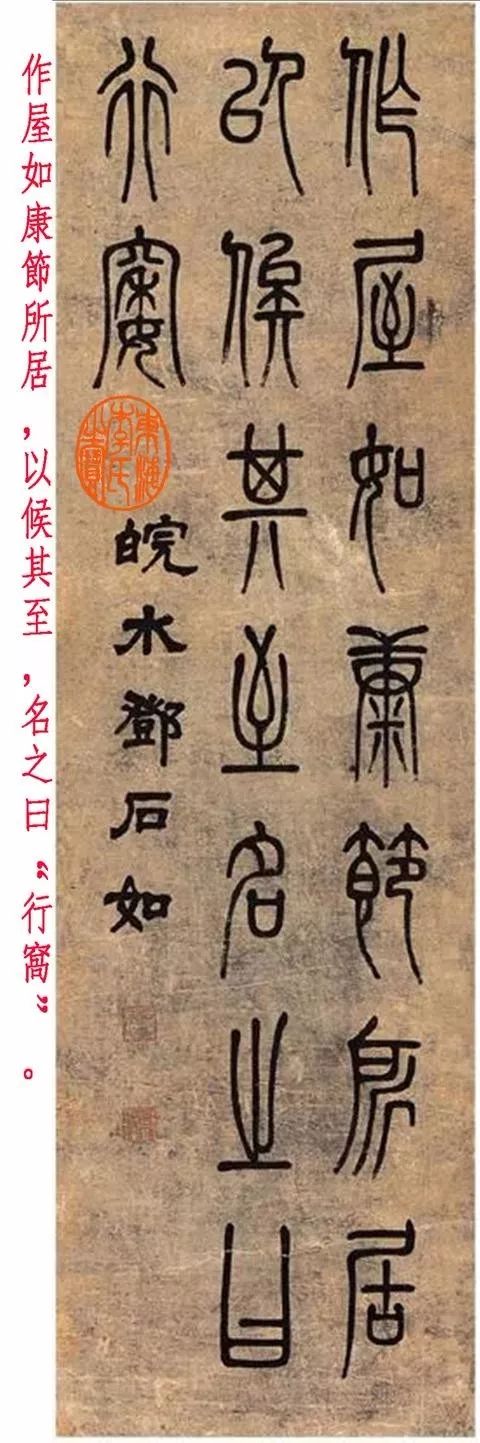 作屋如康節所居
以候其至名之曰
行窩 皖水鄧石如
作屋如康節所居，以候其至，名之曰“行窩”。